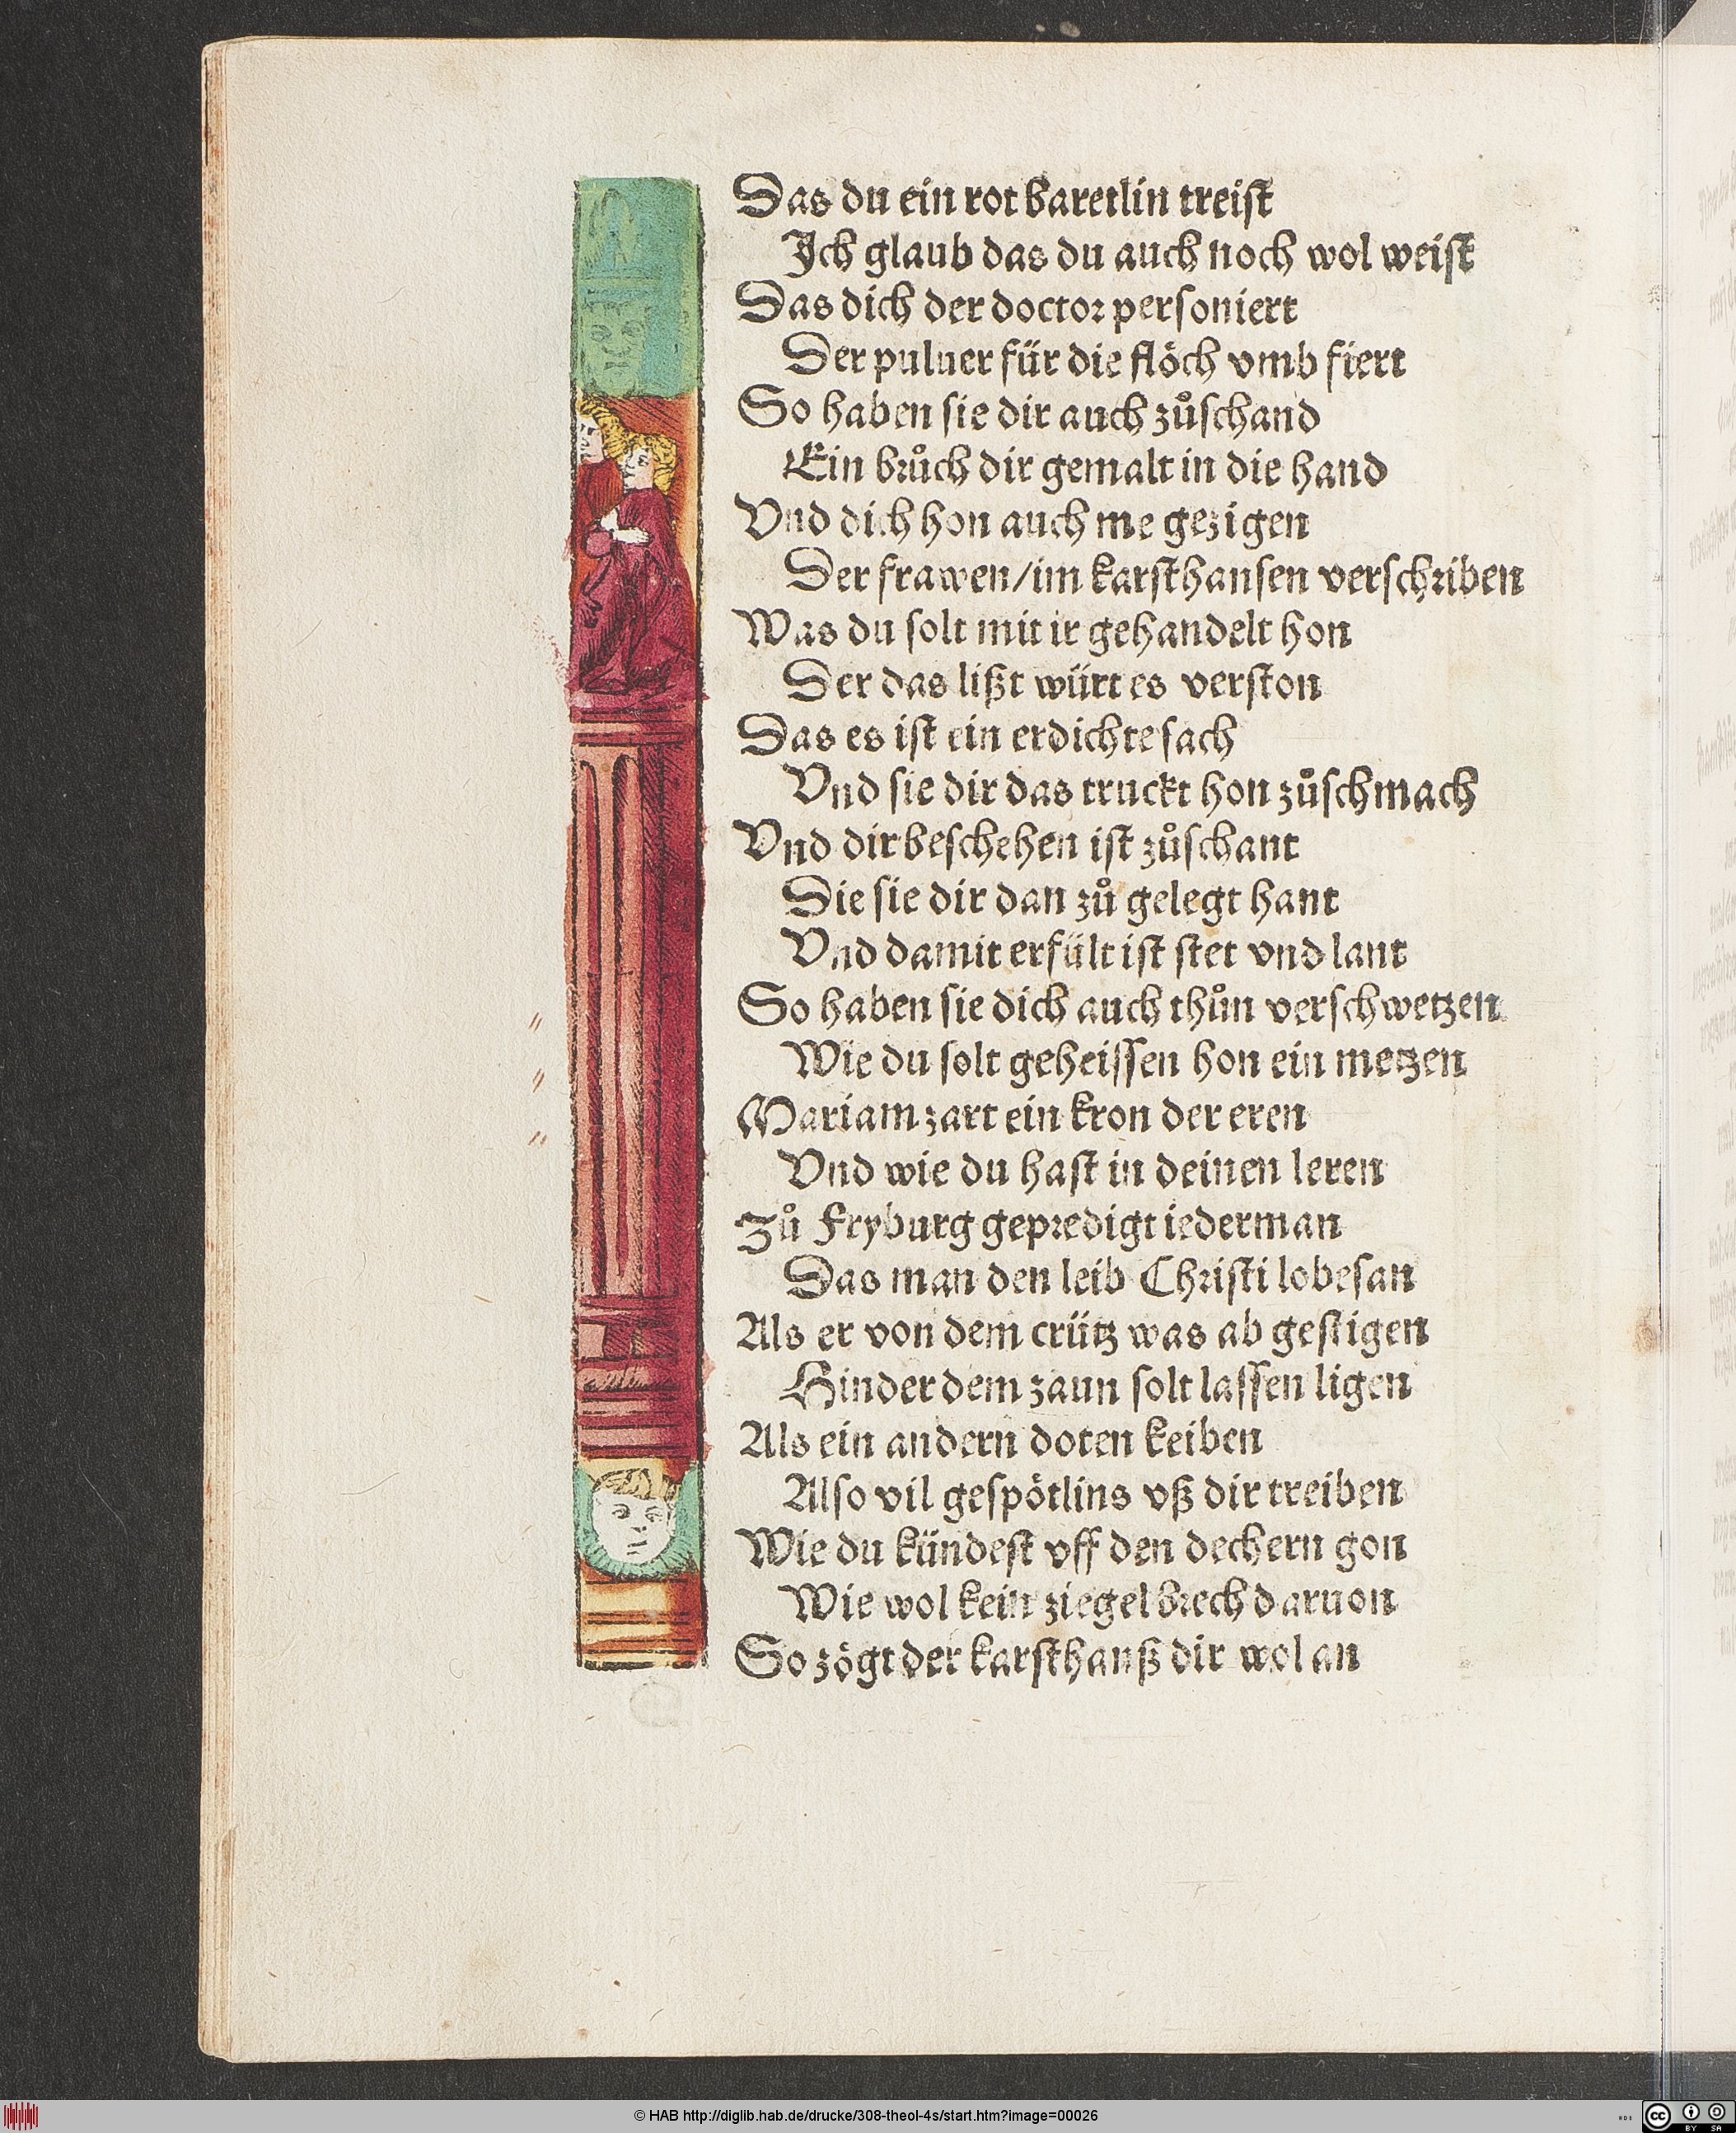 Das du ein rot baretlin treist
Ich glaub das du auch noch wol weist
Das dich der doctor personiert
Der puluer für die flöch vmb fiert
So haben sie dir auch zůschand
Ein brůch dir gemalt in die hand
Vnd dich hon auch me gezigen
Der frawen/im karsthansen verschriben
Was du solt mit ir gehandelt hon
Der das lißt würt es verston
Das es ist ein erdichte sach
Vnd sie dir das truckt hon zůschmach
Vnd dir beschehen ist zůschant
Die sie dir dan zů gelegt hant
Vnd damit erfült ist stet vnd lant
So haben sie dich auch thůn verschwetzen
Wie du solt geheissen hon ein metzen
Mariam zart ein kron der eren
Vnd wie du hast in deinen leren
Zů Fryburg gepredigt iederman
Das man den leib Christi lobesan
Als er von dem crütz was ab gestigen
Hinder dem zaun solt lassen ligen
Als ein andern doten keiben
Also vil gespötlins vß dir treiben
Wie du kündest vff den dechern gon
Wie wol kein ziegel brech daruon
So zögt der karsthanß dir wol an
© HAB http://diglib.hab.de/drucke/308-theol-4s/start.htm?image=00026
cc BY SA